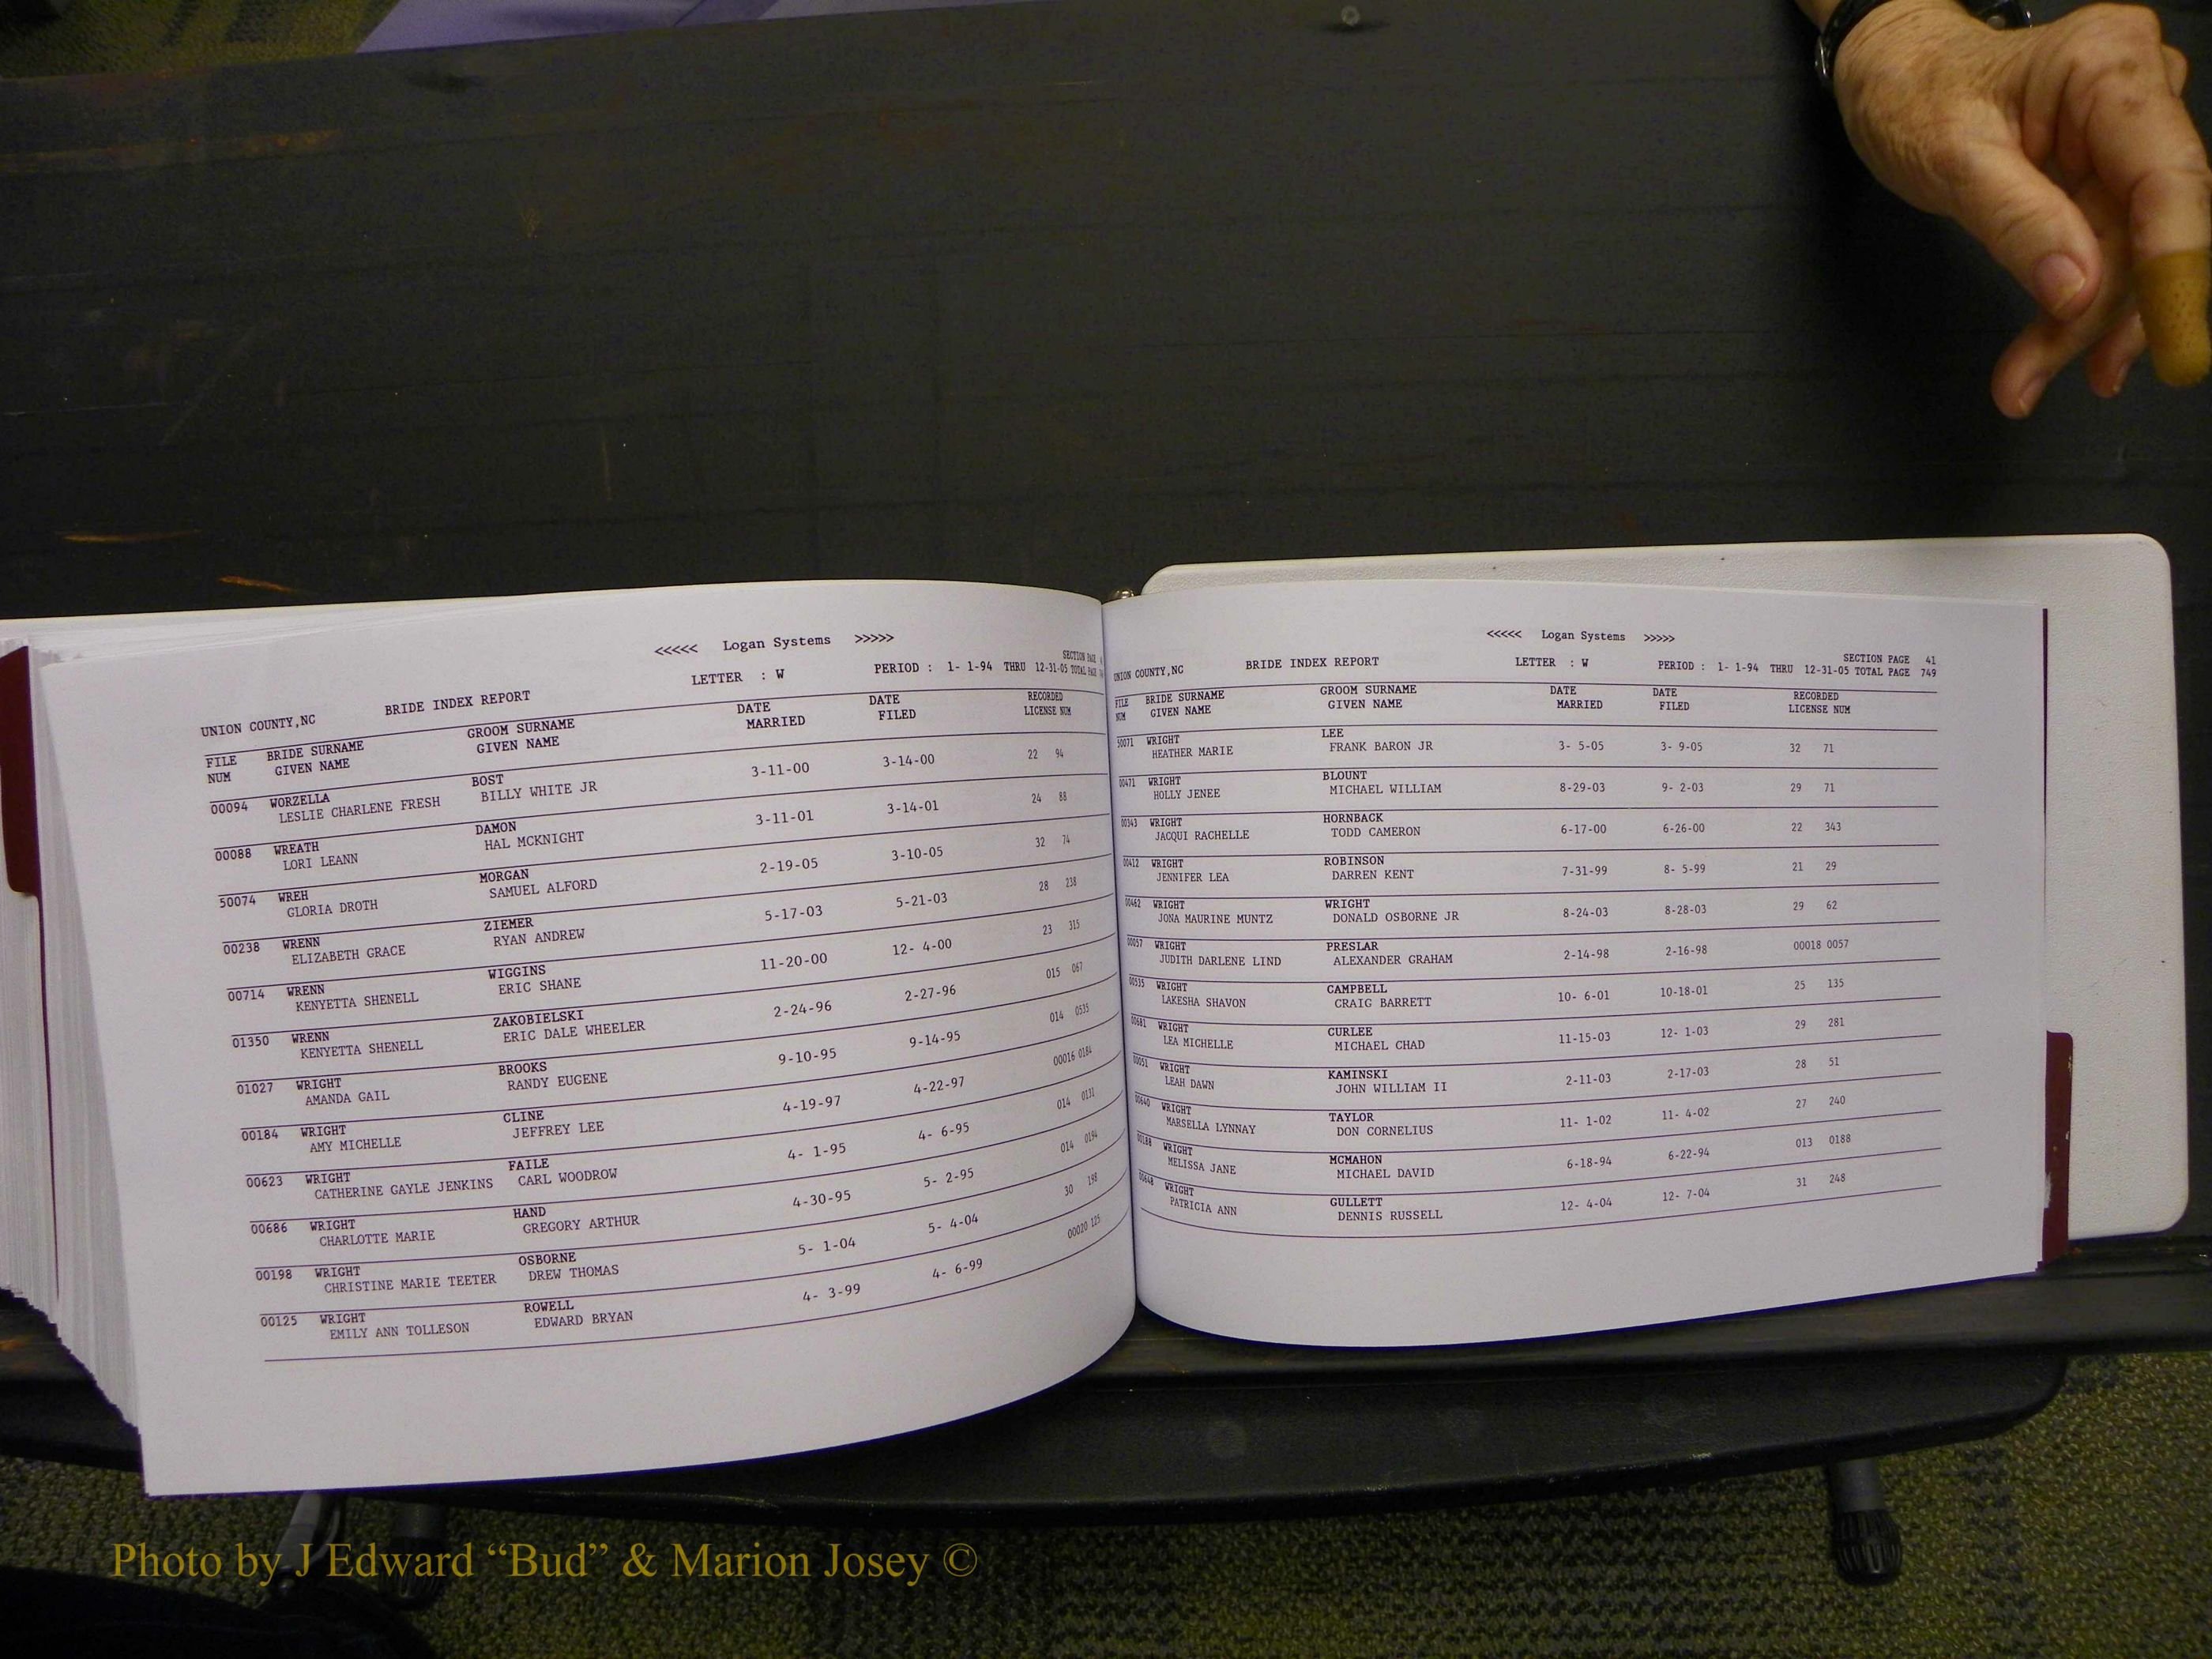 <<<<< Logan Systems >>>>>
UNION COUNTY,NC BRIDE INDEX REPORT LETTER : W PERIOD : 1- 1-94 THRU 12-31-05 TOTAL PAGE
SECTION PAGE
FILE BRIDE SURNAME GROOM SURNAME DATE DATE RECORDED
NUM GIVEN NAME GIVEN NAME MARRIED FILED LICENSE NUM
00094 WORZELLA BOST 3-11-00 3-14-00 22 94
LESLIE CHARLENE FRESH BILLY WHITE JR
00088 WREATH DAMON 3-11-01 3-14-01 24 88
LORI LEANN HAL MCKNIGHT
50074 WREH MORGAN 2-19-05 3-10-05 32 74
GLORIA DROTH SAMUEL ALFORD
00238 WRENN ZIEMER 5-17-03 5-21-03 28 238
ELIZABETH GRACE RYAN ANDREW
00714 WRENN WIGGINS 11-20-00 12- 4-00 23 315
KENYETTA SHENELL ERIC SHANE
01350 WRENN ZAKOBIELSKI 2-24-96 2-27-96 015 067
KENYETTA SHENELL ERIC DALE WHEELER
01027 WRIGHT BROOKS 9-10-95 9-14-95 014 0535
AMANDA GAIL RANDY EUGENE
00184 WRIGHT CLINE 4-19-97 4-22-97 00016 0184
AMY MICHELLE JEFFREY LEE
00623 WRIGHT FAILE 4- 1-95 4- 6-95 014 0131
CATHERINE GAYLE JENKINS CARL WOODROW
00686 WRIGHT HAND 4-30-95 5- 2-95 014 0194
CHARLOTTE MARIE GREGORY ARTHUR
00198 WRIGHT OSBORNE 5- 1-04 5- 4-04 30 198
CHRISTINE MARIE TEETER DREW THOMAS
00125 WRIGHT ROWELL 4- 3-99 4- 6-99 00020 125
EMILY ANN TOLLESON EDWARD BRYAN
<<<<< Logan Systems >>>>>
SECTION PAGE 41
UNION COUNTY,NC BRIDE INDEX REPORT LETTER : W PERIOD : 1- 1-94 THRU 12-31-05 TOTAL PAGE 749
FILE BRIDE SURNAME GROOM SURNAME DATE DATE RECORDED
NUM GIVEN NAME GIVEN NAME MARRIED FILED LICENSE NUM
50071 WRIGHT LEE 3- 5-05 3- 9-05 32 71
HEATHER MARIE FRANK BARON JR
00471 WRIGHT BLOUNT 8-29-03 9- 2-03 29 71
HOLLY JENEE MICHAEL WILLIAM
00343 WRIGHT HORNBACK 6-17-00 6-26-00 22 343
JACQUI RACHELLE TODD CAMERON
00412 WRIGHT ROBINSON 7-31-99 8- 5-99 21 29
JENNIFER LEA DARREN KENT
00462 WRIGHT WRIGHT 8-24-03 8-28-03 29 62
JONA MAURINE MUNTZ DONALD OSBORNE JR
00057 WRIGHT PRESLAR 2-14-98 2-16-98 00018 0057
JUDITH DARLENE LIND ALEXANDER GRAHAM
00535 WRIGHT CAMPBELL 10- 6-01 10-18-01 25 135
LAKESHA SHAVON CRAIG BARRETT
00681 WRIGHT CURLEE 11-15-03 12- 1-03 29 281
LEA MICHELLE MICHAEL CHAD
00051 WRIGHT KAMINSKI 2-11-03 2-17-03 28 51
LEAH DAWN JOHN WILLIAM II
00640 WRIGHT TAYLOR 11- 1-02 11- 4-02 27 240
MARSELLA LYNNAY DON CORNELIUS
00188 WRIGHT MCMAHON 6-18-94 6-22-94 013 0188
MELISSA JANE MICHAEL DAVID
00648 WRIGHT GULLETT 12- 4-04 12- 7-04 31 248
PATRICIA ANN DENNIS RUSSELL
Photo by J Edward “Bud” & Marion Josey ©